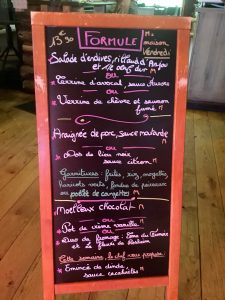 13€50 FORMULE M = maison
Vendredi
Salade d'endives, rillaud d'Anjou
et œuf dur M
ou
* Terrine d'avocat, sauce Aurore
ou
* Verrine de chèvre et saumon
fumé M
Araignée de porc, sauce moutarde
M
ou
* Dos de lieu noir
sauce citron M
Garnitures: frites, riz, mogettes
haricots verts, fondue de poireaux
ou poêlée de courgettes M
* Moelleux chocolat M
ou
* Pot de crème vanille M
ou
* Duo de fromage:
et
Cette semaine, le chef vous propose
* Émincé de dinde
sauce cacahuètes M